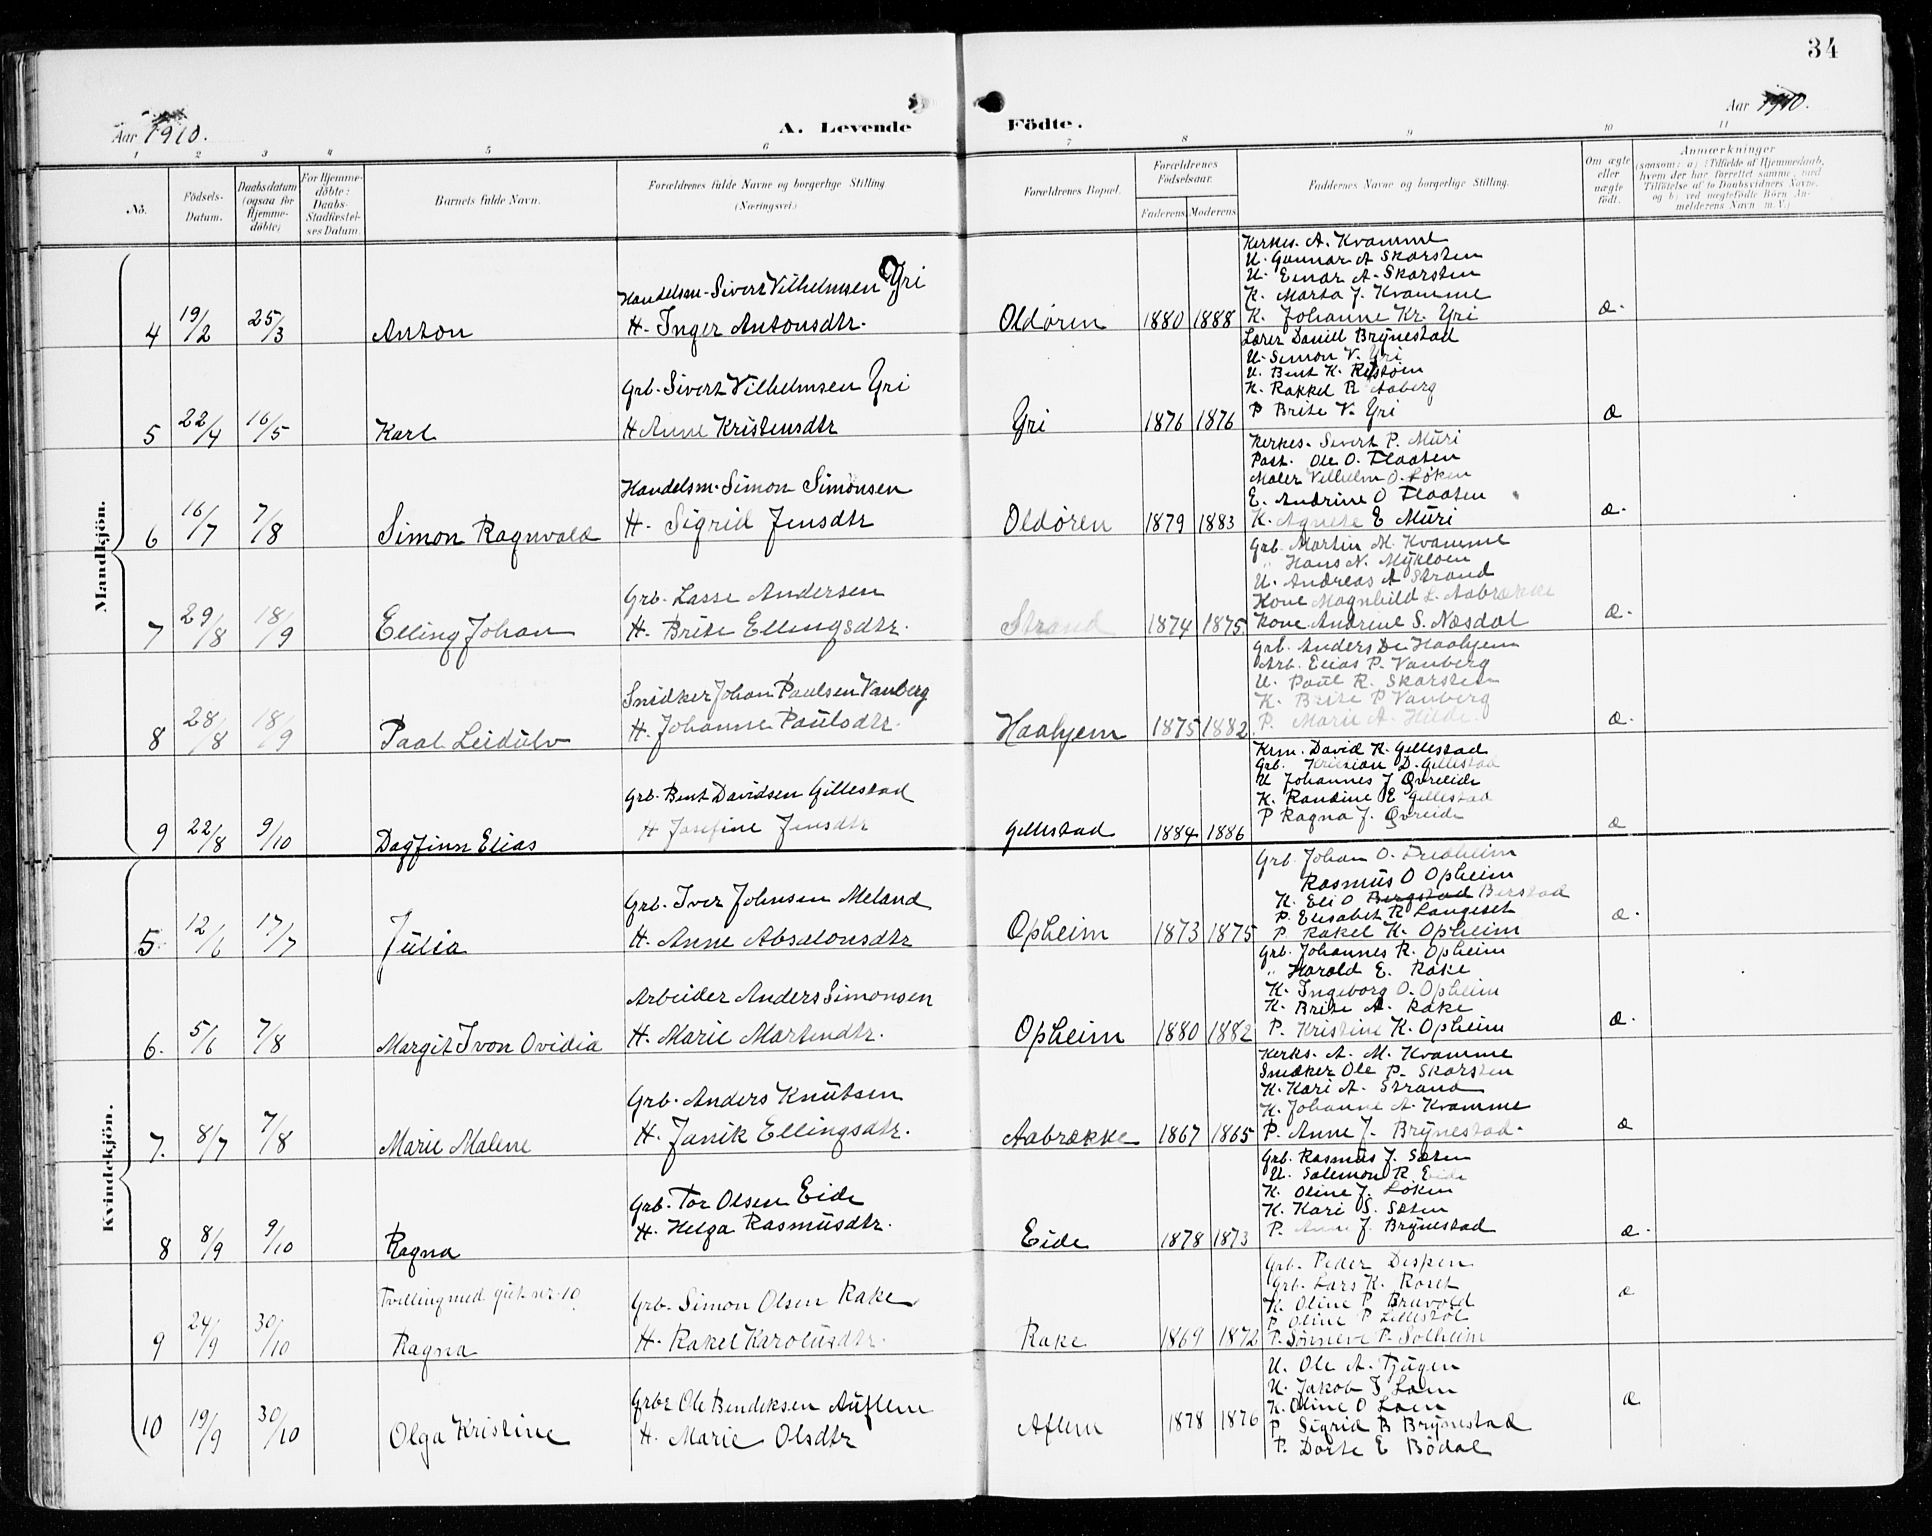 34
Aar 1910.
A. Levende Födte.
Aar 1910.
1 2 3 4 5 6 7 8 9 10 11
No.
Födsels-Datum.
Daabsdatum (ogsaa for Hjemme-döbte)
For Hjemme-döbte: Daabs-Stadfæstel-ses Datum.
Barnets fulde Navn.
Forældrenes fulde Navne og borgerlige Stilling
(Næringsvei.)
Forældrenes Bopæl.
Forældrenes Födselsaar.
Faderens Moderens
Faddernes Navne og borgerlige Stilling.
Om ægte eller uægte födt.
Anmærkninger
(saasom: a) i Tilfælde af Hjemmedaab, hvem der har forrettet samme, med Tilföielse af to Daabsvidners Navne, og b) ved uægtefödte Börn Anmelderens Navn m. V.)
Mandkjön.
4 19/2 25/3 Anton
Handelsm. Sivert Vilhelmsen Yri
H. Inger Antonsdtr.
Oldøren 1880 1888
Kerkes. A. Kvamme
U. Gunnar A Skarsten
U. Einar A. Skarsten
K. Marta J. Kvamme
K. Johanne Kr. Yri
æ.
5 22/4 16/5 Karl
Grb. Sivert Vilhelmsen Yri
H Anne Kristensdtr
Yri 1876 1876
Lærer Daniel Brynestad
U. Simon V. Yri
U. Bent K.
K. Rakkel R Aaberg
P Brite V. Yri
æ
6 16/7 7/8 Simon Ragnvald
Handelsm. Simon Simonsen
H. Sigrid Jensdtr
Oldøren 1879 1883
Kerkes. Sivert P. Muri
Post. Ole O. Flaaten
Maler Vilhelm O. Løken
E. Andrine O Flaaten
K. Agnete E Muri
æ.
7 29/8 18/9 Elling Johan
Grb. Lasse Andersen
H. Brite Ellingsdtr.
Strand 1874 1875
Grb. Martin M. Kvamme
" Hans N. Mykloen
U. Andreas A Strand
Kone Magnhild L. Aabrække
Kone Andrine S. Næsdal
æ.
8 28/8 18/9 Paal Leidulv
Snidker Johan Paulsen Vanberg
H. Johanne Paulsdtr.
Haahjem 1875 1882
Grb. Anders D. Haahjem
Arb. Elias P. Vanberg
U. Paul R. Skarsten
K. Brite P Vanberg
P. Marie A. Hilde.
æ.
9 22/8 9/10 Dagfinn Elias
Grb. Bent Davidsen Gillestad
H Josefine Jensdtr
Gillestad 1884 1886
Krm. David R. Gillestad
Grb. Kristian D. Gillestad
U Johannes J Øvreeide
K. Randine E Gillestad
P Ragna J. Øvreide
æ
Kvindekjön.
5. 12/6 17/7 Julia
Grb. Iver Johnsen Meland
H. Anne Absalonsdtr
Opheim 1873 1875
Grb. Johan O. Fridheim
Rasmus O Opheim
K. Eli O Bergstad Berstad
P. Elisabet R Langeset
P. Rakel K. Opheim
æ.
6. 5/6 7/8 Margit Ivon Ovidia
Arbeider Anders Simonsen
H. Marie Martendtr.
Opheim 1880 1882
Grb. Johannes R. Opheim
" Harald E. Rake
K. Ingeborg O. Opheim
K. Brite A. Rake
P. Kristine K. Opheim
æ.
7. 8/7 7/8 Marie Malene
Grb. Anders Knutsen
H. Janik Ellingsdtr.
Aabrække 1867 1865
Kerks. A. M. Kvamme
Snidker Ole P. Skarsten
K. Kari A. Strand
K. Johanne A. Kvamme
P. Anne J. Brynestad.
æ
8 8/9 9/10 Ragna
Grb. Tor Olsen Eide
H. Helga Rasmusdtr.
Eide 1878 1873
Grb. Rasmus J. Sæten
U. Salemon R. Eide
K. Oline J. Løken
K. Kari S. Sæten
P. Anne J. Brynestad
æ.
Tvilling med gut nr. 10
9 24/9 30/10 Ragna
Grb. Simon Olsen Rake
H. Rakel Karolusdtr.
Rake 1869 1872
Grb. Peder Dispen
Grb. Lars K. Roset
K. Oline P. Bruvold
P. Oline P Lillestøl
P. Sønneve P. Solheim
æ
10 19/9 30/10 Olga Kristine
Grbr Ole Bendiksen Auflem
H. Marie Olsdtr
Aflem 1878 1876
U. Ole A. Tjugen
U. Jakob T Loen
K. Oline O Loen
P. Sigrid B Brynestad
P. Dorte E Bødal
æ